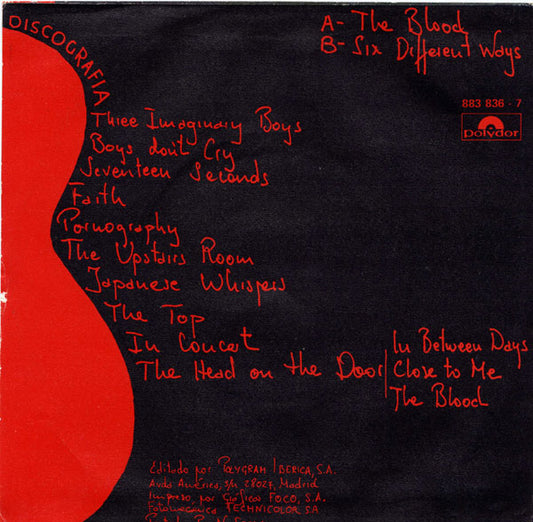 DISCOGRAFIA
A- The Blood
B- Six Different Ways
883 836 - 7
polydor
Three Imaginary Boys
Boys don't Cry
Seventeen Seconds
Faith
Pornography
The Upstairs Room
Japanese Whispers
The Top
In Concert
The Head on the Door
In Between Days
Close to Me
The Blood
Editado por POLYGRAM IBERICA, S.A.
Avda América, s/n, 28027, Madrid
Impreso por Gráficas FOCO, S.A.
Fotomecánica TECHNICOLOR SA